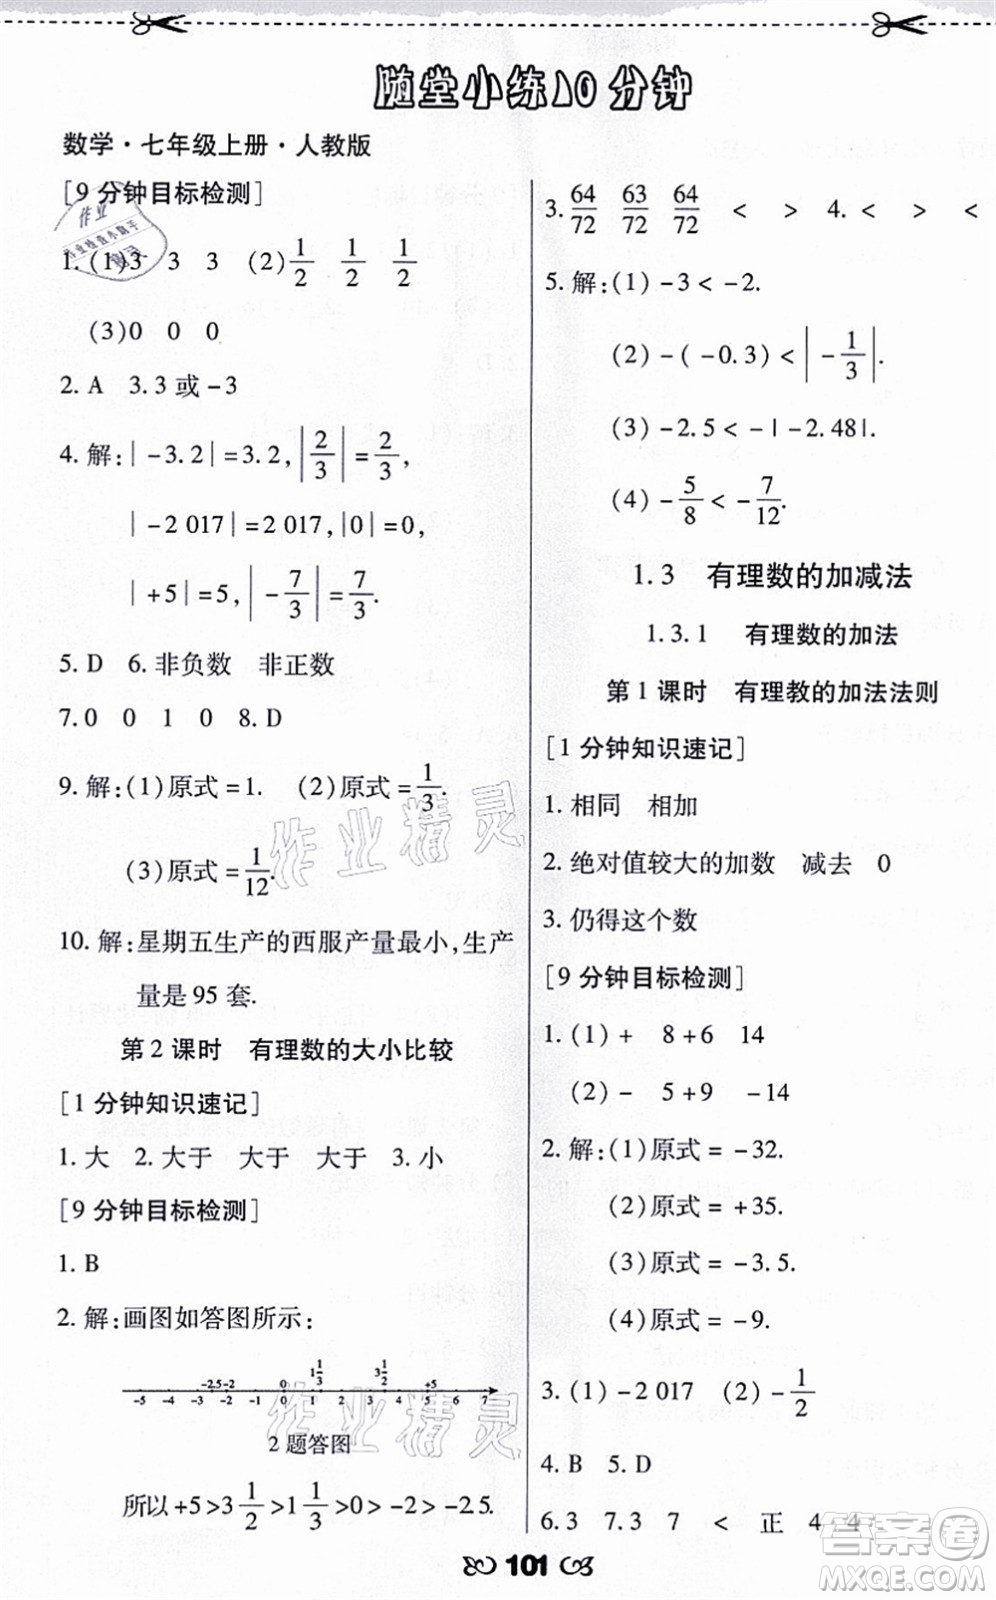 随堂小练10分钟
数学·七年级上册·人教版
[9分钟目标检测]
1.(1)3 3 3 (2)1/2 1/2 1/2
(3)0 0 0
2. A 3. 3 或 -3
4. 解:|-3.2|=3.2,|2/3|=2/3,
|-2 017|=2 017,|0|=0,
|+5|=5,|-7/3|=7/3.
5. D 6. 非负数 非正数
7. 0 0 1 0 8. D
9. 解:(1)原式=1. (2)原式=1/3.
(3)原式=1/12.
10. 解:星期五生产的西服产量最小,生产
量是 95 套.
第 2 课时 有理数的大小比较
[1 分钟知识速记]
1. 大 2. 大于 大于 大于 3. 小
[9 分钟目标检测]
1. B
2. 解:画图如答图所示:
-2.5 -2 0 1 1/3 3 1/2 +5
-5 -4 -3 -2 -1 0 1 2 3 4 5 6 7
2 题答图
所以 +5>3 1/2>1 1/3>0>-2>-2.5.
3. 64/72 63/72 64/72 < > 4. < > <
5. 解:(1)-3<-2.
(2)-(-0.3)<|-1/3|.
(3)-2.5<-|-2.48|.
(4)-5/8<-7/12.
1.3 有理数的加减法
1.3.1 有理数的加法
第 1 课时 有理教的加法法则
[1 分钟知识速记]
1. 相同 相加
2. 绝对值较大的加数 减去 0
3. 仍得这个数
[9 分钟目标检测]
1. (1)+ 8+6 14
(2)- 5+9 -14
2. 解:(1)原式=-32.
(2)原式=+35.
(3)原式=-3.5.
(4)原式=-9.
3. (1)-2 017 (2)-1/2
4. B 5. D
6. 3 7. 3 7 < 正 4 4
101
作业精灵
作业精灵
答案圈
MXQE.COM